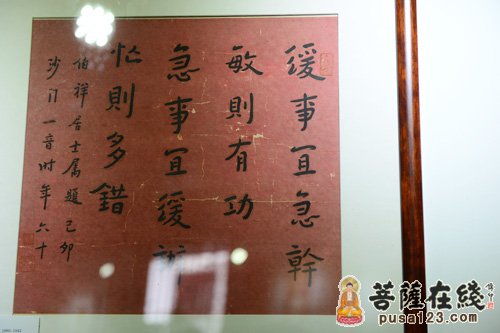 缓事宜急幹
敏则有功
急事宜缓辦
忙则多錯
伯祥居士属題 己卯
沙门一音时年六十
菩薩在綫
pusa123.com